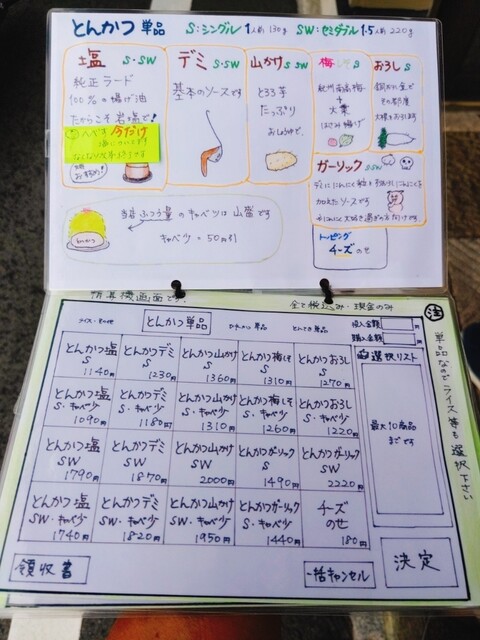 とんかつ 単品 S:シングル 1人前 130g SW:セミダブル 1.5人前 220g
塩 S・SW
純正ラード
100%の揚げ油
だからこそ岩塩で!
今だけ
デミ S・SW
基本のソースです
山かけ S SW
とろろ芋
たっぷり
梅しそ S
紀州南高梅
+
大葉
はさみ揚げ
おろし S
ガーリック SW
デミににんにく
加えたソースです
トッピング
チーズのせ
当店ふつう量のキャベツは山盛です
キャベツ少=50円引
とんかつ
券売機画面です。 全て税込み・現金のみ
注
単品なのでライス等も選択下さい
とんかつ単品
投入金額
購入金額
とんかつ塩
S
1140円
とんかつデミ
S
1230円
とんかつ山かけ
S
1360円
とんかつ梅しそ
S
1310円
とんかつおろし
S
1270円
選択リスト
最大10商品
までです
とんかつ塩
S・キャベ少
1090円
とんかつデミ
S・キャベ少
1180円
とんかつ山かけ
S・キャベ少
1310円
とんかつ梅しそ
S・キャベ少
1260円
とんかつおろし
S・キャベ少
1220円
とんかつ塩
SW
1790円
とんかつデミ
SW
1870円
とんかつ山かけ
SW
2000円
とんかつガーリック
S
1490円
とんかつガーリック
SW
2220円
とんかつ塩
SW・キャベ少
1740円
とんかつデミ
SW・キャベ少
1820円
とんかつ山かけ
SW・キャベ少
1950円
とんかつガーリック
S・キャベ少
1440円
チーズ
のせ
180円
領収書
一括キャンセル
決定